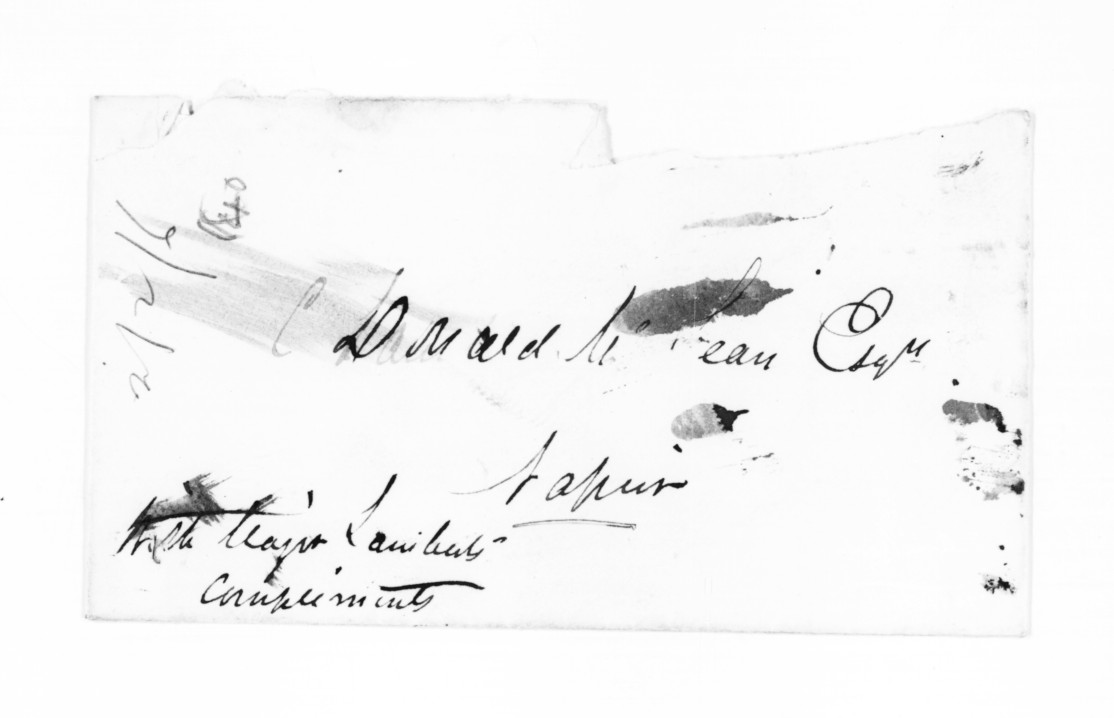 Donald McLean Esqre
Napier
With Major Lamberts
Compliments